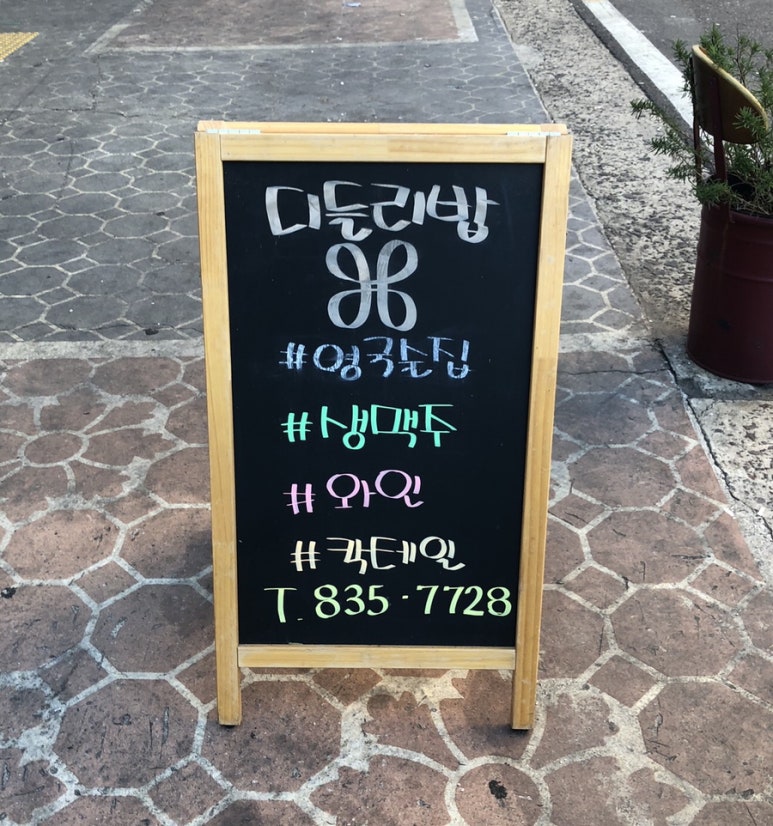 디들리밥
⌘
#영국술집
#생맥주
#와인
#칵테일
T. 835·7728